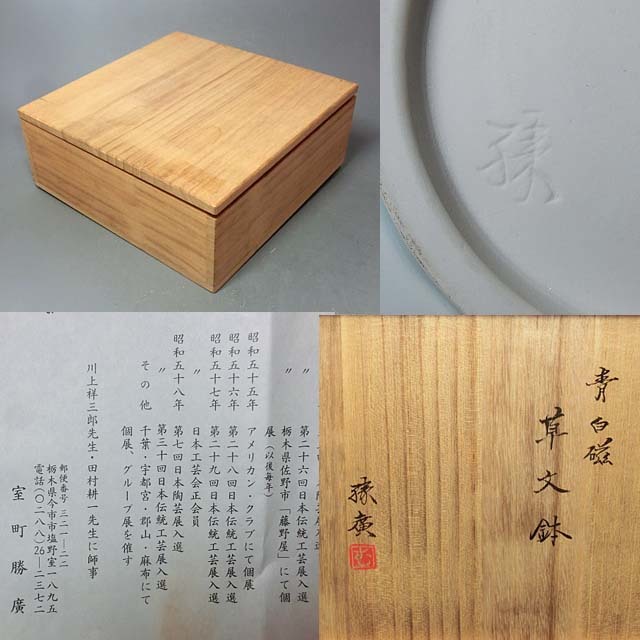 第二十六回日本伝統工芸展入選
〃 栃木県佐野市「藤野屋」にて個
展(以後毎年)
昭和五十五年 アメリカン・クラブにて個展
昭和五十六年 第二十八回日本伝統工芸展入選
昭和五十七年 第二十九回日本伝統工芸展入選
〃 日本工芸会正会員
昭和五十八年 第七回日本陶芸展入選
〃 第三十回日本伝統工芸展入選
その他 千葉・宇都宮・郡山・麻布にて
個展、グループ展を催す
川上祥三郎先生・田村耕一先生に師事
郵便番号 三二一―二二
栃木県今市市塩野室一八九五
電話(〇二八八)26―二三七二
室町勝廣
青白磁
草文鉢